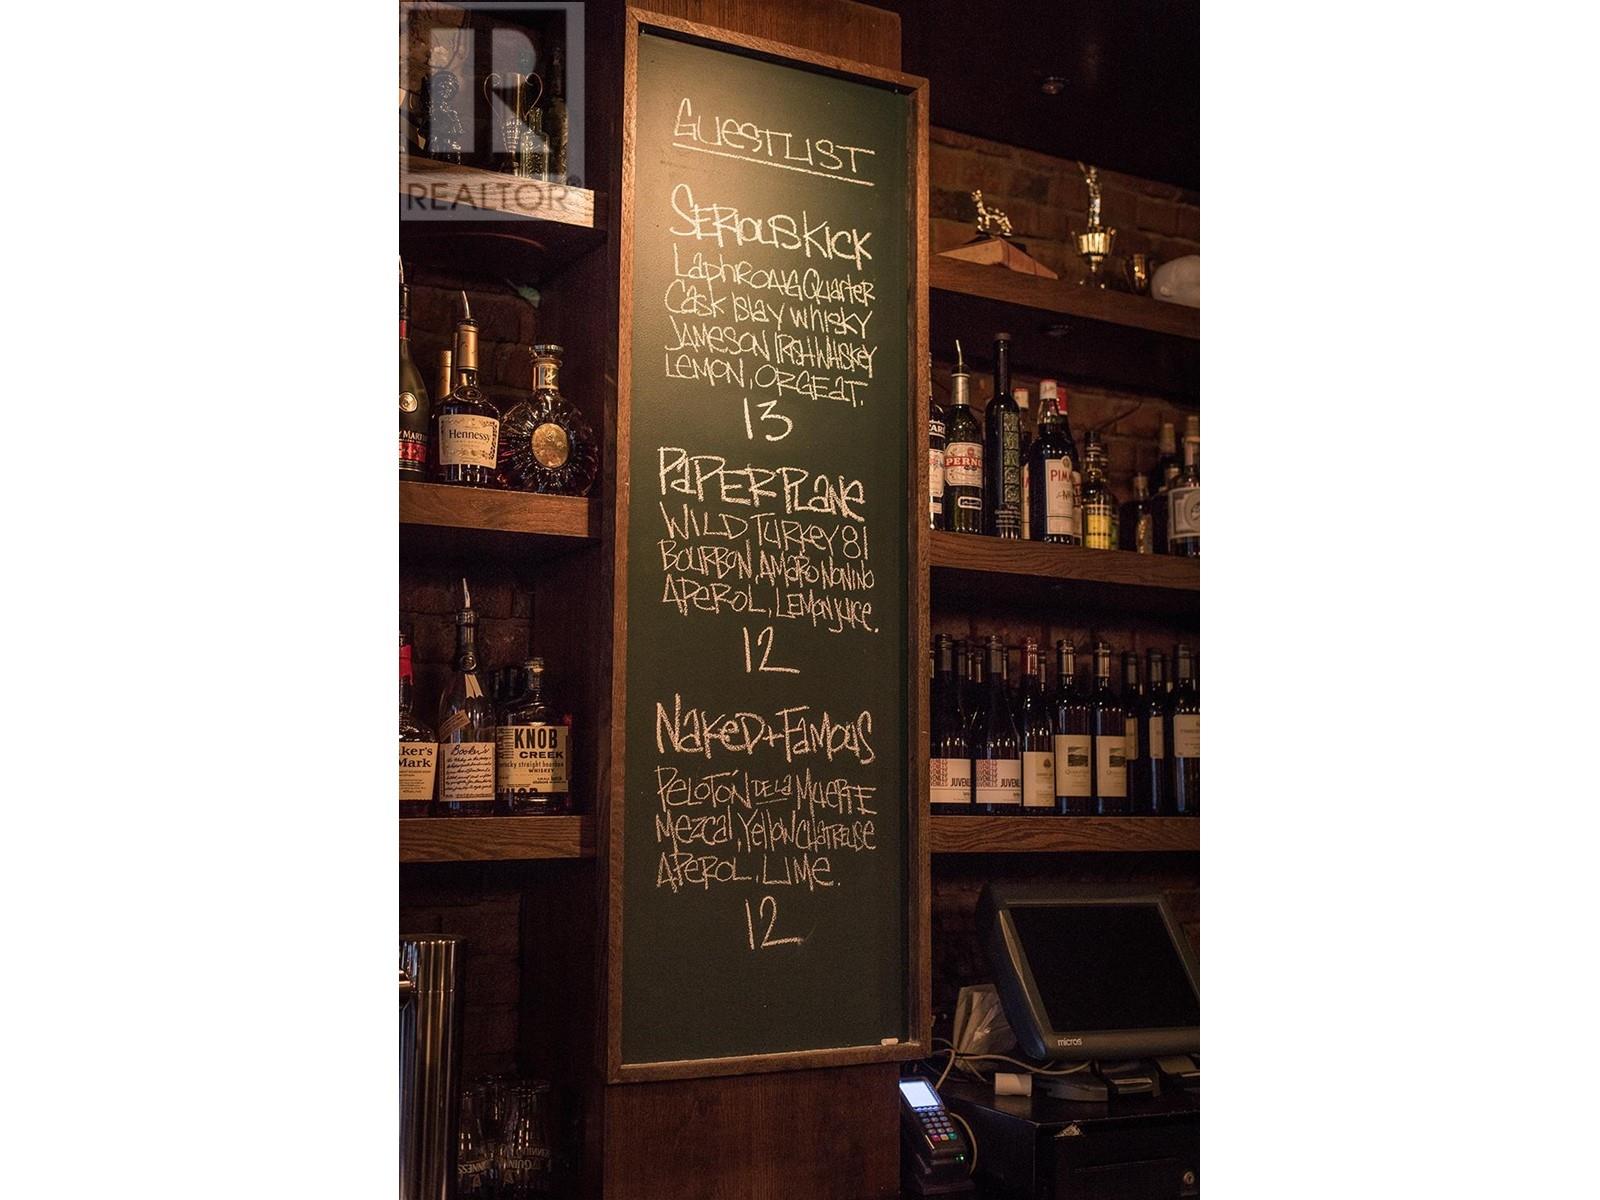 REALTOR®
GUESTLIST
SERIOUS KICK
LAPHROAIG QUARTER
CASK ISLAY WHISKY
JAMESON IRISH WHISKEY
LEMON, ORGEAT.
13
PAPER PLANE
WILD TURKEY 81
BOURBON, AMARO NONINO
APEROL, LEMON JUICE.
12
NAKED + FAMOUS
PELOTÓN DE LA MUERTE
MEZCAL, YELLOW CHATREUSE
APEROL, LIME.
12
Hennessy
PERN
PIM
ker's
Mark
Booker's
KNOB
CREEK
straight bourbon
WHISKEY
KNOB
JUVENILES
JUVENI
micros
GUIN